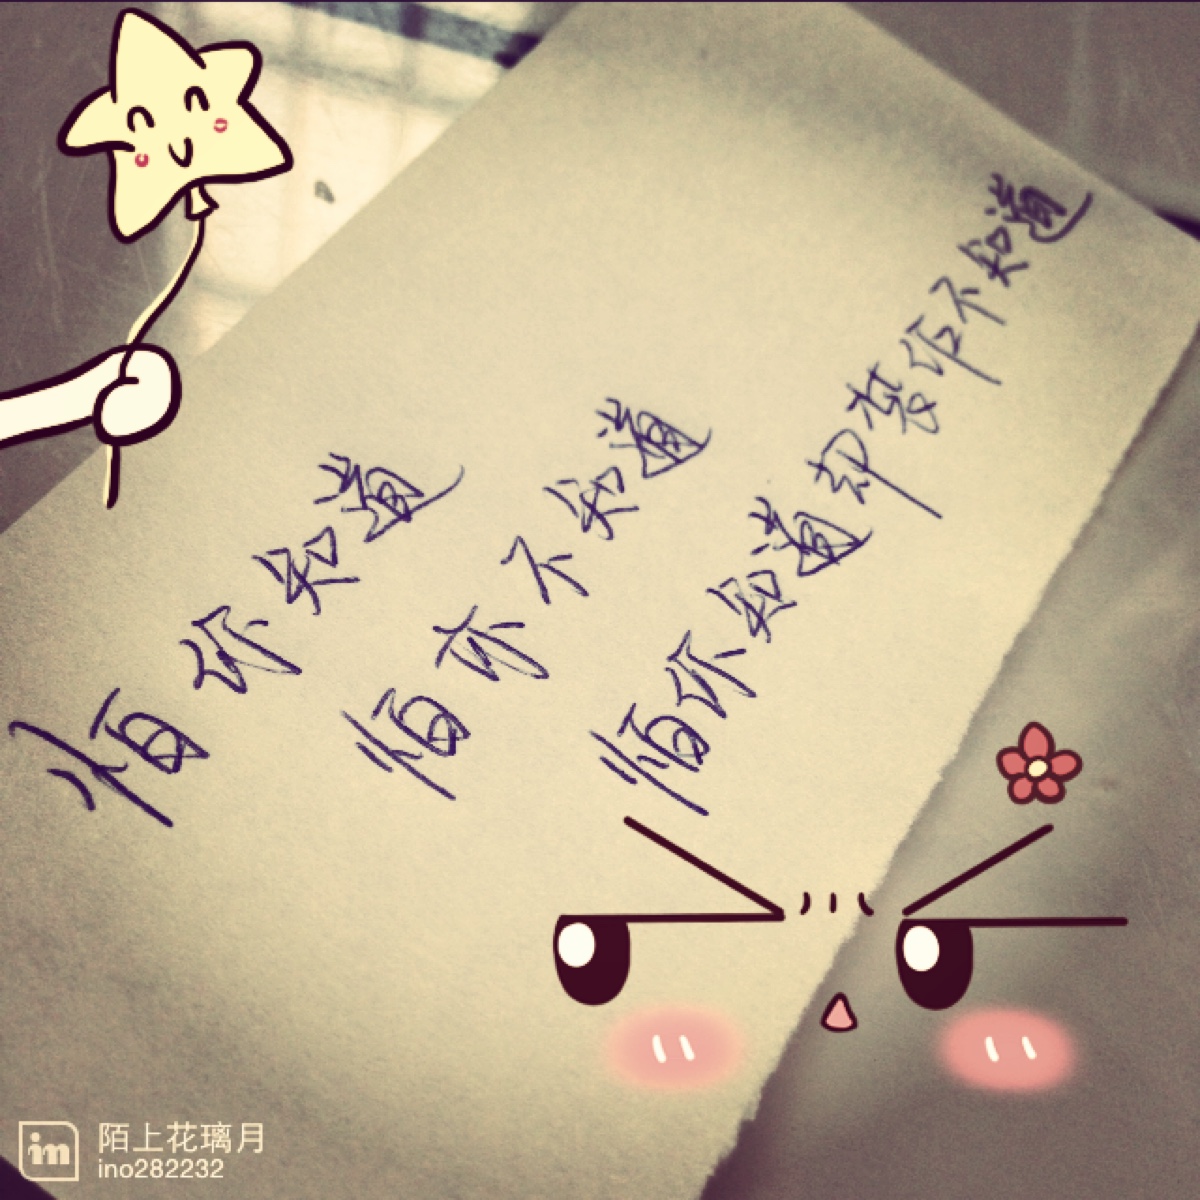 怕你知道
怕你不知道
怕你知道却装作不知道
im 陌上花璃月
ino282232